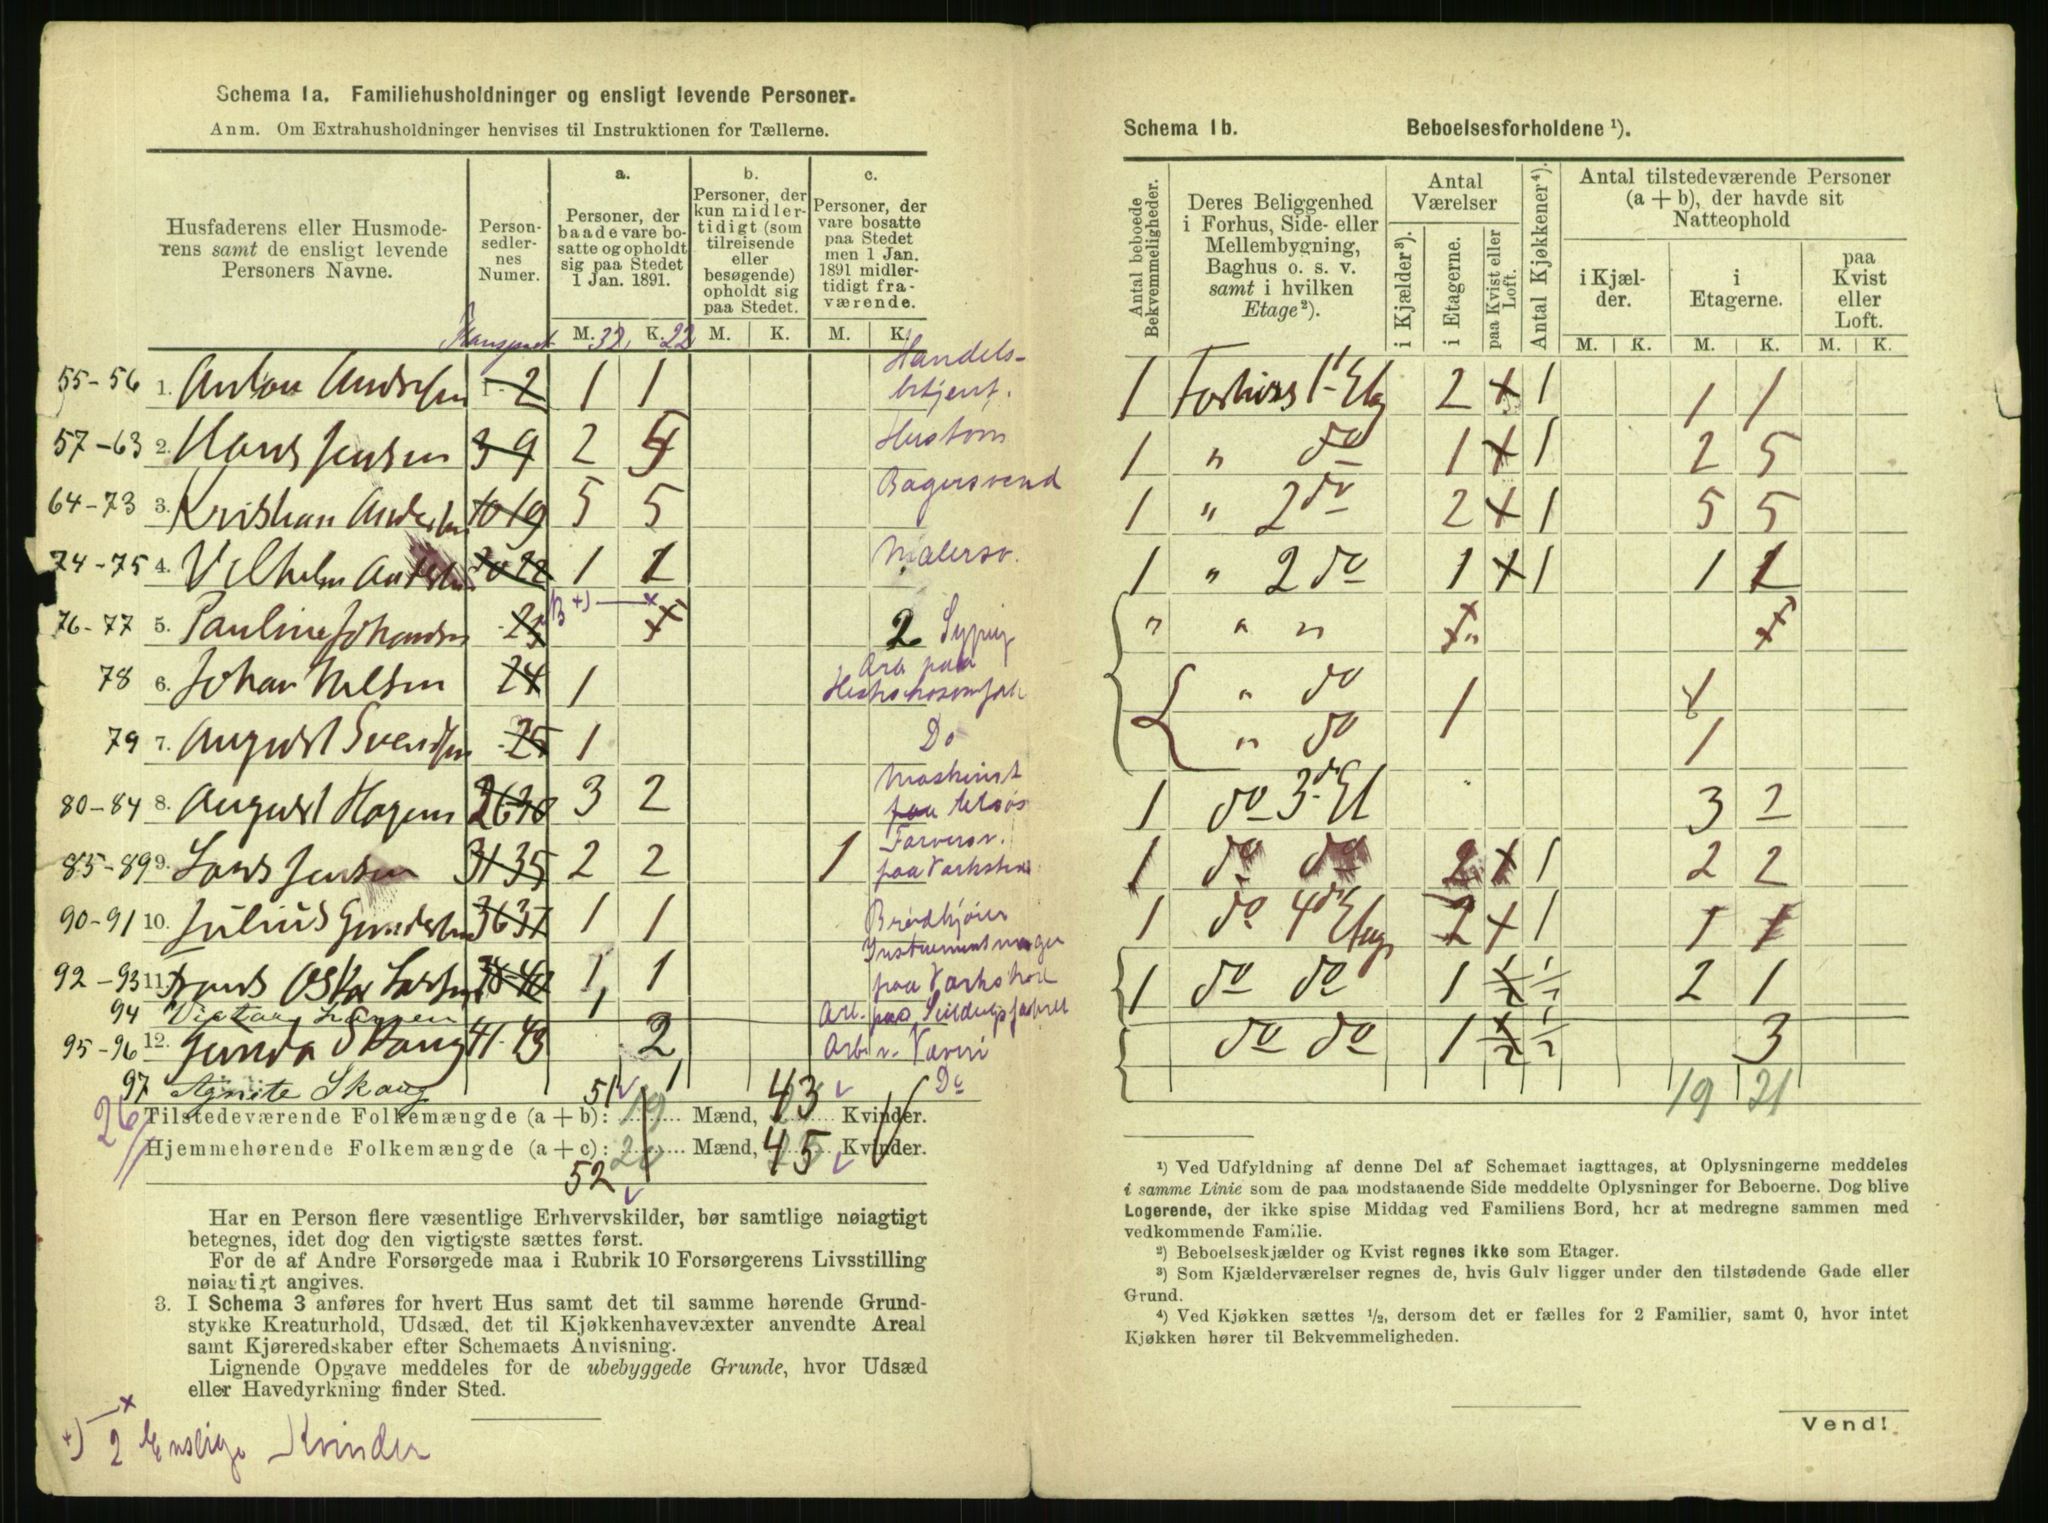 Schema 1a. Familiehusholdninger og ensligt levende Personer.
Anm. Om Extrahusholdninger henvises til Instruktionen for Tællerne.
Husfaderens eller Husmode-
rens samt de ensligt levende
Personers Navne.
Person-
sedler-
nes
Numer.
a.
Personer, der
baade vare bo-
satte og opholdt
sig paa Stedet
1 Jan. 1891.
b.
Personer, der
kun midler-
tidigt (som
tilreisende
eller
besøgende)
opholdt sig
paa Stedet.
c.
Personer, der
vare bosatte
paa Stedet
men 1 Jan.
1891 midler-
tidigt fra-
værende.
Transport M. 32 K. 22 M. K. M. K.
55-56 1. Anton Andersen 1-2 1 1 Handels-
betjent.
57-63 2. Hans Jensen 3 9 2 5 Hustom
64-73 3. Kristian Andersen 10 19 5 5 Bagersvend
74-75 4. Vilhelm Andersen 1 1 Malersv.
76-77 5. Pauline Johansen 23 2 Sypig
78 6. Johan Nilsen 24 1 Arb paa
Hesteskosømfabr
79 7. August Svendsen 25 1 Do
80-84 8. August Hagen 26 30 3 2 Maskinist
85-89 9. Lars Jensen 31 35 2 2 1 Farversv.
paa Varksted
90-91 10. Julius Gundersen 36 37 1 1 Brødkjører
92-93 11. Frants Oskar Larsen 38-40 1 1 Instrumentmager
paa Varksted
94 Viktor Larsen 1 Arb. paa Seildugsfabrik
95-96 12. Gunda Skaug 41-43 2 Arb v. Væveri
97 Agnite Skaug 1 Do
26
Tilstedeværende Folkemængde (a + b): 51 19 Mænd, 43 Kvinder.
Hjemmehørende Folkemængde (a + c): 52 20 Mænd, 45 Kvinder.
Har en Person flere væsentlige Erhvervskilder, bør samtlige nøiagtigt
betegnes, idet dog den vigtigste sættes først.
For de af Andre Forsørgede maa i Rubrik 10 Forsørgerens Livsstilling
nøiagtigt angives.
3. I Schema 3 anføres for hvert Hus samt det til samme hørende Grund-
stykke Kreaturhold, Udsæd, det til Kjøkkenhavevæxter anvendte Areal
samt Kjøreredskaber efter Schemaets Anvisning.
Lignende Opgave meddeles for de ubebyggede Grunde, hvor Udsæd
eller Havedyrkning finder Sted.
+) 2 Enslige Kvinder
Schema 1b. Beboelsesforholdene ¹).
Antal beboede
Bekvemmeligheder.
Deres Beliggenhed
i Forhus, Side- eller
Mellembygning,
Baghus o. s. v.
samt i hvilken
Etage ²).
Antal
Værelser
i Kjælder ³).
i Etagerne.
paa Kvist eller
Loft.
Antal Kjøkkener ⁴).
Antal tilstedeværende Personer
(a + b), der havde sit
Natteophold
i Kjæl-
der.
i
Etagerne.
paa
Kvist
eller
Loft.
M. K. M. K. M. K.
1 Forhuss 1 Etg 2 x 1 1 1
1 " do 1 x 1 2 5
1 " 2 do 2 x 1 5 5
1 " 2 do 1 x 1 1 1
" " "
" do 1 1
" do 1
1 do 3 Et 3 2
1 do do 2 x 1 2 2
1 do 4 Etage 2 x 1 1 1
1 do do 1 ½ 2 1
do do 1 ½ 3
19 21
¹) Ved Udfyldning af denne Del af Schemaet iagttages, at Oplysningerne meddeles
i samme Linie som de paa modstaaende Side meddelte Oplysninger for Beboerne. Dog blive
Logerende, der ikke spise Middag ved Familiens Bord, her at medregne sammen med
vedkommende Familie.
²) Beboelseskjælder og Kvist regnes ikke som Etager.
³) Som Kjælderværelser regnes de, hvis Gulv ligger under den tilstødende Gade eller
Grund.
⁴) Ved Kjøkken sættes ½, dersom det er fælles for 2 Familier, samt 0, hvor intet
Kjøkken hører til Bekvemmeligheden.
Vend!